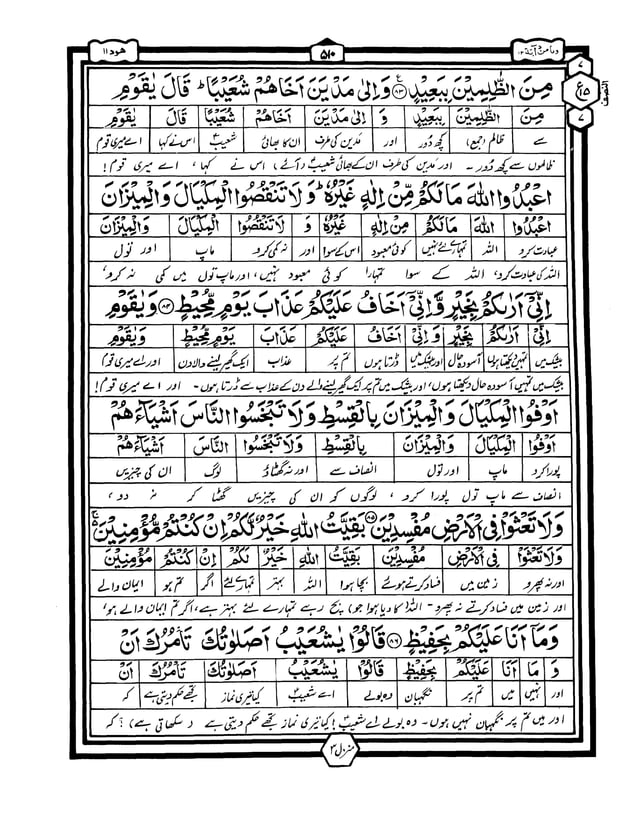 وما من دآبۃ ۱۲
۵۱۰
ھود ۱۱
النصف
مِنَ الظّٰلِمِیْنَ بِبَعِیْدٍ ﴿۸۳﴾ وَاِلٰی مَدْیَنَ اَخَاهُمْ شُعَیْبًا ؕ قَالَ یٰقَوْمِ
مِنَ الظّٰلِمِیْنَ بِبَعِیْدٍ وَ اِلٰی مَدْیَنَ اَخَاهُمْ شُعَیْبًا قَالَ یٰقَوْمِ
سے ظالم (جمع) کچھ دُور اور مَدین کی طرف ان کا بھائی شعیبؑ اس نے کہا اے میری قوم
ظالموں سے کچھ دُور۔ اور مَدین کی طرف ان کے بھائی شعیبؑ (آئے)، اس نے کہا، اے میری قوم!
اعْبُدُوا اللّٰهَ مَا لَكُمْ مِّنْ اِلٰهٍ غَیْرُهٗ ؕ وَلَا تَنْقُصُوا الْمِكْیَالَ وَالْمِیْزَانَ
اعْبُدُوا اللّٰهَ مَالَكُمْ مِنْ اِلٰهٍ غَیْرُهٗ وَ لَا تَنْقُصُوا الْمِكْیَالَ وَالْمِیْزَانَ
عبادت کرو اللہ تمہارے لئے نہیں کوئی معبود اس کے سوا اور نہ کمی کرو ماپ اور تول
اللہ کی عبادت کرو، اللہ کے سوا تمہارا کوئی معبود نہیں، اور ماپ تول میں کمی نہ کرو،
اِنِّیْۤ اَرٰىكُمْ بِخَیْرٍ وَّاِنِّیْۤ اَخَافُ عَلَیْكُمْ عَذَابَ یَوْمٍ مُّحِیْطٍ ﴿۸۴﴾ وَیٰقَوْمِ
اِنِّیْ اَرٰىكُمْ بِخَیْرٍ وَاِنِّیْ اَخَافُ عَلَیْكُمْ عَذَابَ یَوْمٍ مُحِیْطٍ وَیٰقَوْمِ
بیشک میں تمہیں دیکھتا ہوں آسودہ حال اور بیشک میں ڈرتا ہوں تم پر عذاب ایک گھیر لینے والا دن اور اے میری قوم
بیشک میں تمہیں آسودہ حال دیکھتا ہوں، اور بیشک میں تم پر ایک گھیر لینے والے دن کے عذاب سے ڈرتا ہوں۔ اور اے میری قوم!
اَوْفُوا الْمِكْیَالَ وَالْمِیْزَانَ بِالْقِسْطِ وَلَا تَبْخَسُوا النَّاسَ اَشْیَآءَهُمْ
اَوْفُوا الْمِكْیَالَ وَالْمِیْزَانَ بِالْقِسْطِ وَلَا تَبْخَسُوا النَّاسَ اَشْیَآءَهُمْ
پورا کرو ماپ اور تول انصاف سے اور نہ گھٹاؤ لوگ ان کی چیزیں
انصاف سے ماپ تول پورا کرو، لوگوں کو ان کی چیزیں گھٹا کر نہ دو،
وَلَا تَعْثَوْا فِی الْاَرْضِ مُفْسِدِیْنَ ﴿۸۵﴾ بَقِیَّتُ اللّٰهِ خَیْرٌ لَّكُمْ اِنْ كُنْتُمْ مُّؤْمِنِیْنَ
وَلَا تَعْثَوْا فِی الْاَرْضِ مُفْسِدِیْنَ بَقِیَّتُ اللّٰهِ خَیْرٌ لَكُمْ اِنْ كُنْتُمْ مُؤْمِنِیْنَ
اور نہ پھرو زمین میں فساد کرتے ہوئے بچا ہوا اللہ بہتر تمہارے لئے اگر تم ہو ایمان والے
اور زمین میں فساد کرتے نہ پھرو۔ اللہ کا دیا ہوا (جو) بچ رہے تمہارے لئے بہتر ہے، اگر تم ایمان والے ہو،
وَمَاۤ اَنَا عَلَیْكُمْ بِحَفِیْظٍ ﴿۸۶﴾ قَالُوْا یٰشُعَیْبُ اَصَلٰوتُكَ تَاْمُرُكَ اَنْ
وَ مَا اَنَا عَلَیْكُمْ بِحَفِیْظٍ قَالُوْا یٰشُعَیْبُ اَصَلٰوتُكَ تَاْمُرُكَ اَنْ
اور نہیں میں تم پر نگہبان وہ بولے اے شعیبؑ کیا تیری نماز تجھے حکم دیتی ہے کہ
اور میں تم پر نگہبان نہیں ہوں۔ وہ بولے اے شعیبؑ! کیا تیری نماز تجھے حکم دیتی ہے (سکھاتی ہے)؟ کہ
منزل ۳